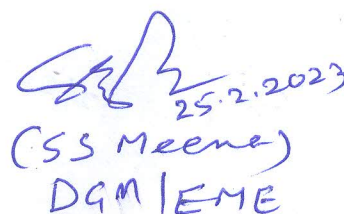 25.2.2023
(SS Meena)
DGM/EME